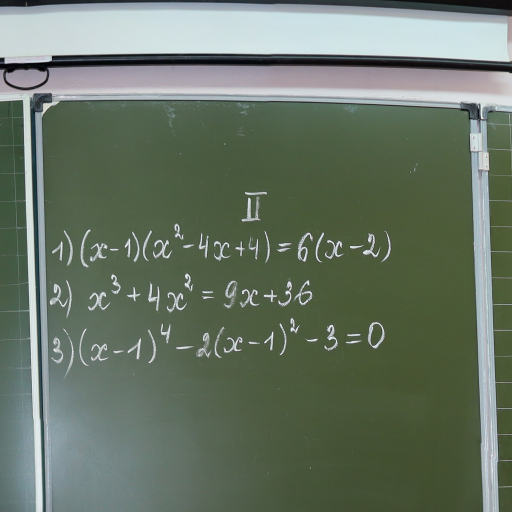 II
1) (x-1)(x²-4x+4)=6(x-2)
2) x³+4x²=9x+36
3) (x-1)⁴-2(x-1)²-3=0